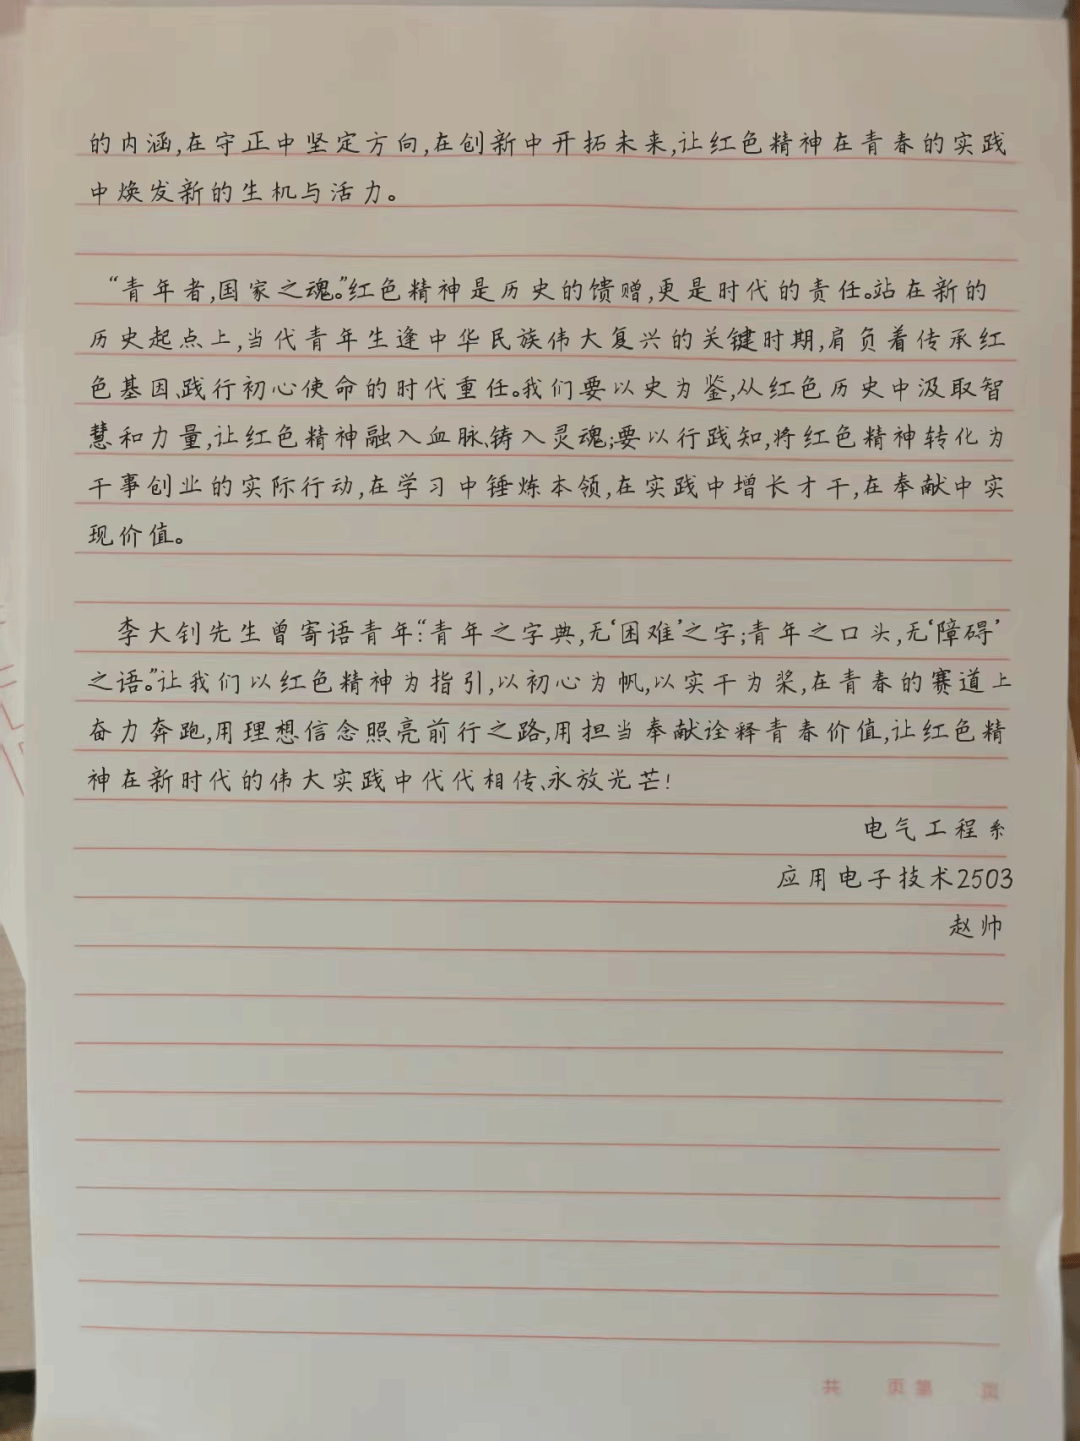 的内涵,在守正中坚定方向,在创新中开拓未来,让红色精神在青春的实践
中焕发新的生机与活力。
“青年者,国家之魂。”红色精神是历史的馈赠,更是时代的责任。站在新的
历史起点上,当代青年生逢中华民族伟大复兴的关键时期,肩负着传承红
色基因、践行初心使命的时代重任。我们要以史为鉴,从红色历史中汲取智
慧和力量,让红色精神融入血脉、铸入灵魂;要以行践知,将红色精神转化为
干事创业的实际行动,在学习中锤炼本领,在实践中增长才干,在奉献中实
现价值。
李大钊先生曾寄语青年:“青年之字典,无‘困难’之字;青年之口头,无‘障碍’
之语。”让我们以红色精神为指引,以初心为帆,以实干为桨,在青春的赛道上
奋力奔跑,用理想信念照亮前行之路,用担当奉献诠释青春价值,让红色精
神在新时代的伟大实践中代代相传、永放光芒!
电气工程系
应用电子技术2503
赵帅
共 页 第 页